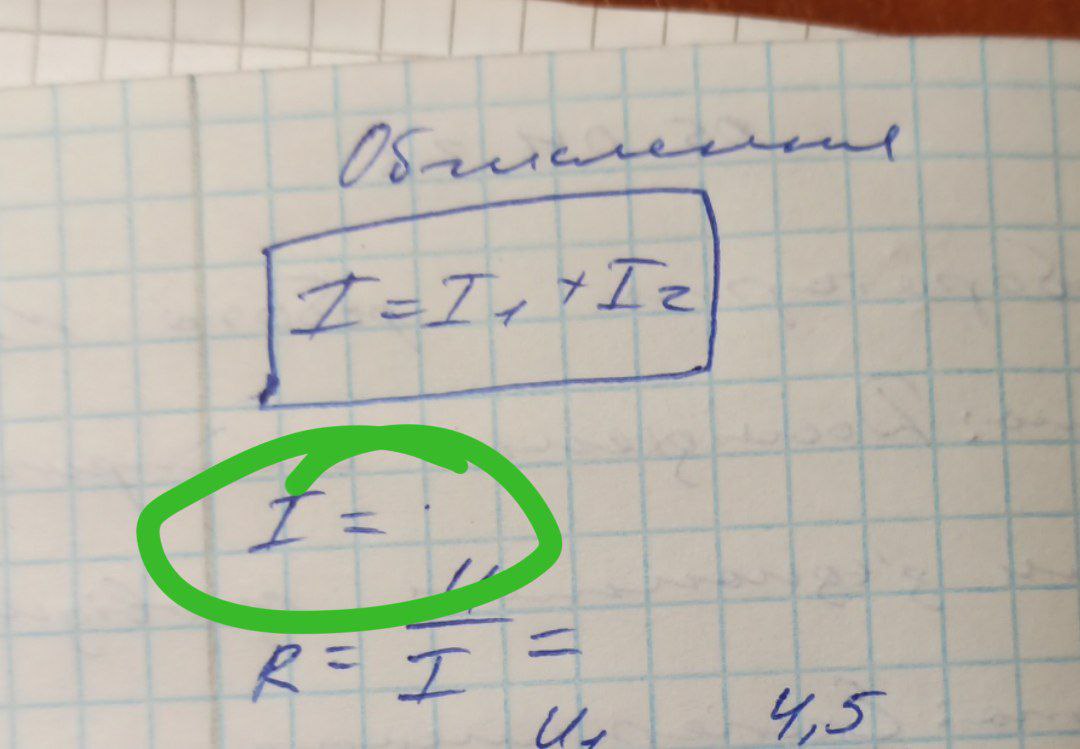 Обчислення
I = I₁ + I₂
I =
R = U/I =
U₁ 4,5